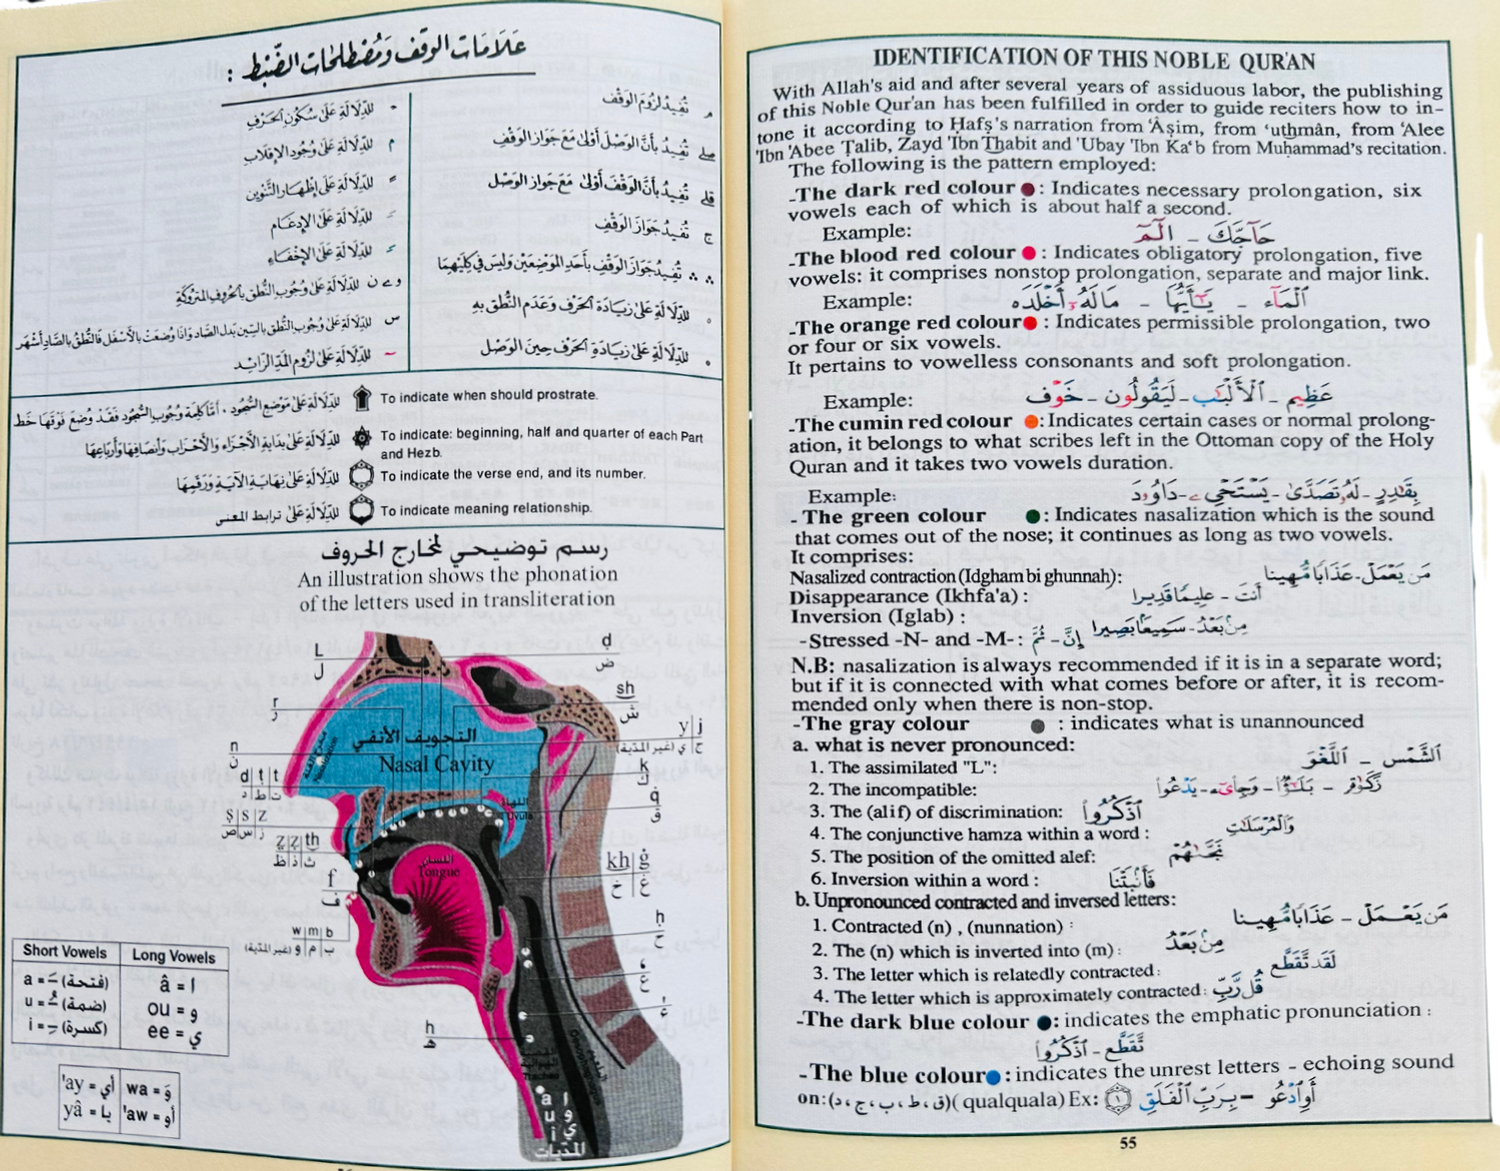 عَلَامَات الوَقف وَمُصْطَلحَات الضَّبْط :
م تُفِيدُ لزُومَ الوَقْف
صلے تُفِيدُ بأنَّ الوَصْلَ أَوْلَىٰ مَعَ جَوَازِ الوَقْفِ
قلے تُفِيدُ بأَنَّ الوَقْفَ أَوْلَىٰ مَعَ جَوَازِ الوَصْلِ
ج تُفِيدُ جَوَازَ الوَقْفِ
∴ ∴ تُفِيدُ جَوَازَ الوَقْفِ بأَحَدِ المَوْضِعَيْنِ وَليْسَ في كِلَيْهِمَا
ْ للدِّلَالَةِ عَلىٰ زِيَادَةِ الحَرْف وَعَدَمِ النُّطْق بهِ
ْ للدِّلَالَةِ عَلىٰ زِيَادَةِ الحَرْفِ حِينَ الوَصْل
للدِّلَالَةِ عَلىٰ سُكُونِ الحَرْفِ
م للدِّلَالَةِ عَلىٰ وُجُودِ الإِقْلَاب
للدِّلَالَةِ عَلىٰ إِظهَارِ التَّنْوِين
للدِّلَالَةِ عَلىٰ الإِدغَام
للدِّلَالَةِ عَلىٰ الإِخْفَاء
و ے ن للدِّلَالَةِ عَلىٰ وُجُوبِ النُّطق بالحُروفِ المَتروكَةِ
س للدِّلَالَةِ عَلىٰ وُجُوبِ النُّطق بالسِّين بَدل الصَّاد وَإذَا وُضعَتْ بالأَسْفَل فَالنُّطْقُ بالصَّادِ أَشْهَر
للدِّلَالَةِ عَلىٰ لزُومِ المَدِّ الزَّائِد
للدِّلَالَةِ عَلىٰ مَوْضِعِ السُّجُودِ ، أَمَّا كَلِمَة وُجُوبِ السُّجُود فَقَد وُضِعَ فَوْقَهَا خَط
To indicate when should prostrate.
للدِّلَالَةِ عَلىٰ بدَايَةِ الأَجْزَاء وَالأَحْزَاب وَأَنصَافِهَا وَأَربَاعِهَا
To indicate: beginning, half and quarter of each Part
and Hezb.
للدِّلَالَةِ عَلىٰ نِهَايَةِ الآيَةِ وَرَقمِهَا
To indicate the verse end, and its number.
للدِّلَالَةِ عَلىٰ ترابط المعنى
To indicate meaning relationship.
رسم توضيحي لمخارج الحروف
An illustration shows the phonation
of the letters used in transliteration
L
ل
r
ر
n
ن
d t t
د ط ت
Ṣ s z
ص س ز
Z Z th
ظ ذ ث
f
ف
w m b
(غير المدّية) و م ب
h
هـ
d
ض
sh
ش
y j
(غير المدّية) ي ج
k
ك
q
ق
kh ġ
خ غ
ḥ
ح
‘
ع
’
ء
التجويف الأنفي
Nasal Cavity
اللهاة
Uvula
اللسان
Tongue
a ا
u و
i ي
المدّيات
Short Vowels Long Vowels
a = ـَ (فتحة) â = ا
u = ـُ (ضمة) ou = و
i = ـِ (كسرة) ee = ي
'ay = أي wa = وَ
yâ = يا 'aw = أو
IDENTIFICATION OF THIS NOBLE QUR'AN
With Allah's aid and after several years of assiduous labor, the publishing
of this Noble Qur'an has been fulfilled in order to guide reciters how to in-
tone it according to Ḥafṣ's narration from 'Âṣim, from ‘uthmân, from 'Alee
'Ibn 'Abee Ṭalib, Zayd 'Ibn Thabit and 'Ubay 'Ibn Ka‘b from Muḥammad's recitation.
The following is the pattern employed:
-The dark red colour : Indicates necessary prolongation, six
vowels each of which is about half a second.
Example: حَآجَّكَ - الٓمٓ
-The blood red colour : Indicates obligatory prolongation, five
vowels: it comprises nonstop prolongation, separate and major link.
Example: الْمَآء - يَـٰٓأَيُّهَا - مَالَهُۥٓ أَخْلَدَه
-The orange red colour : Indicates permissible prolongation, two
or four or six vowels.
It pertains to vowelless consonants and soft prolongation.
Example: عَظِيم - الْأَلْبَـٰب - لَيَقُولُون - خَوْف
-The cumin red colour : Indicates certain cases or normal prolong-
ation, it belongs to what scribes left in the Ottoman copy of the Holy
Quran and it takes two vowels duration.
Example: بِقَـٰدِرٍ - لَهُۥ تَصَدَّىٰ - يَسْتَحْىِۦ - دَاوُۥدَ
- The green colour : Indicates nasalization which is the sound
that comes out of the nose; it continues as long as two vowels.
It comprises:
Nasalized contraction (Idgham bi ghunnah): مَن يَعْمَلْ - عَذَابًا مُّهِينا
Disappearance (Ikhfa'a) : أَنتَ - عَلِيمًا قَدِيرا
Inversion (Iglab) : مِنۢ بَعْدُ - سَمِيعًۢا بَصِيرا
-Stressed -N- and -M- : إِنَّ - ثُمَّ
N.B: nasalization is always recommended if it is in a separate word;
but if it is connected with what comes before or after, it is recom-
mended only when there is non-stop.
-The gray colour : indicates what is unannounced
a. what is never pronounced:
1. The assimilated "L": الشَّمْس - اللَّغْوَ
2. The incompatible: زَكَوٰة - بَلَـٰٓؤٌا - وَجِاْىٓءَ - يَدْعُواْ
3. The (alif) of discrimination: اذْكُرُواْ
4. The conjunctive hamza within a word : وَالْمُرْسَلَـٰتِ
5. The position of the omitted alef: نَجَّىٰهُمْ
6. Inversion within a word : فَأَنۢبَتْنَا
b. Unpronounced contracted and inversed letters:
1. Contracted (n) , (nunnation) : مَن يَعْمَلْ - عَذَابًا مُّهِينا
2. The (n) which is inverted into (m) : مِنۢ بَعْدُ
3. The letter which is relatedly contracted : لَقَد تَّقَطَّع
4. The letter which is approximately contracted : قُل رَّبِّ
-The dark blue colour : indicates the emphatic pronunciation :
تَّقَطَّع - اذْكُرُواْ
-The blue colour : indicates the unrest letters - echoing sound
on: (ق، ط، ب، ج، د)( qualquala) Ex: أَوِ ادْعُو - بِرَبِّ الْفَلَقِ ١
55